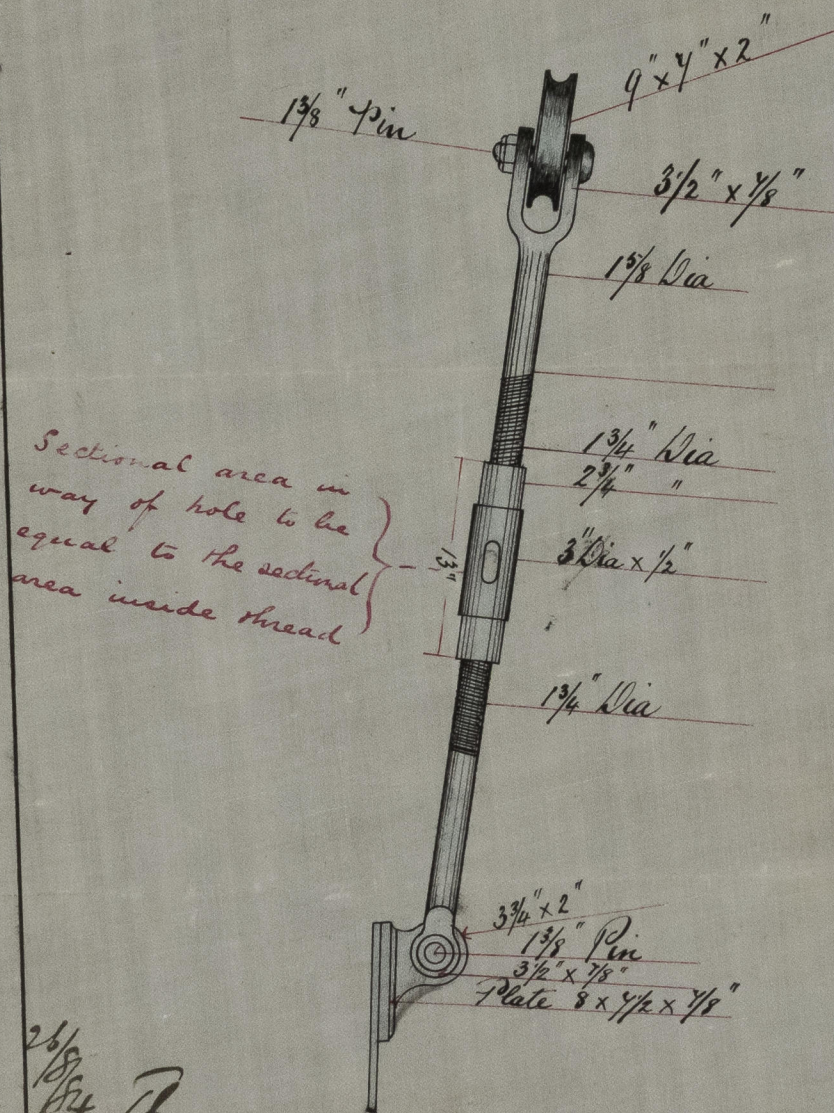 9" x 4" x 2"
1 3/8" Pin
3 1/2" x 7/8"
1 5/8 Dia
1 3/4" Dia
2 3/4" "
Sectional area in
way of hole to be
equal to the sectional
area inside thread
13"
3" Dia x 1/2"
1 3/4" Dia
3 3/4" x 2"
1 3/8" Pin
3 1/2" x 7/8"
Plate 8 x 4 1/2 x 7/8"
26/8/84